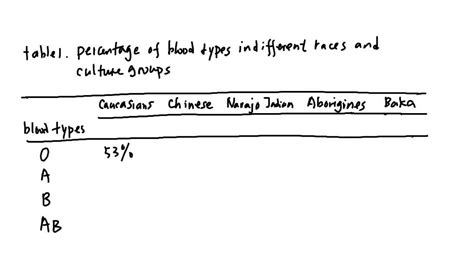 table1. percentage of blood types in different races and
culture groups
Caucasians Chinese Navajo Indian Aborigines Baka
blood types
O 53%
A
B
AB